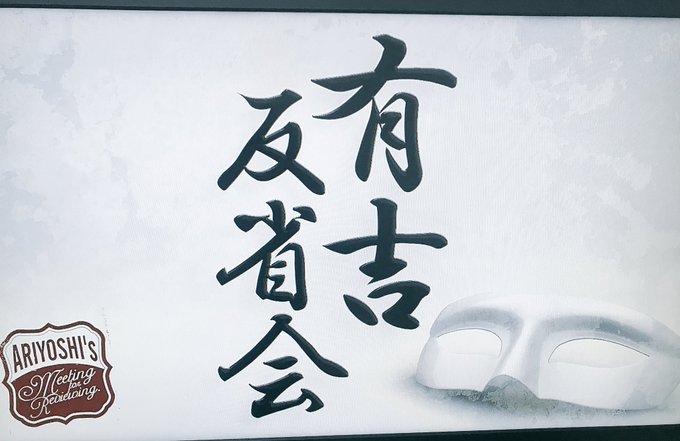 有吉
反省会
ARIYOSHI'S
Meeting
for
Reviewing.